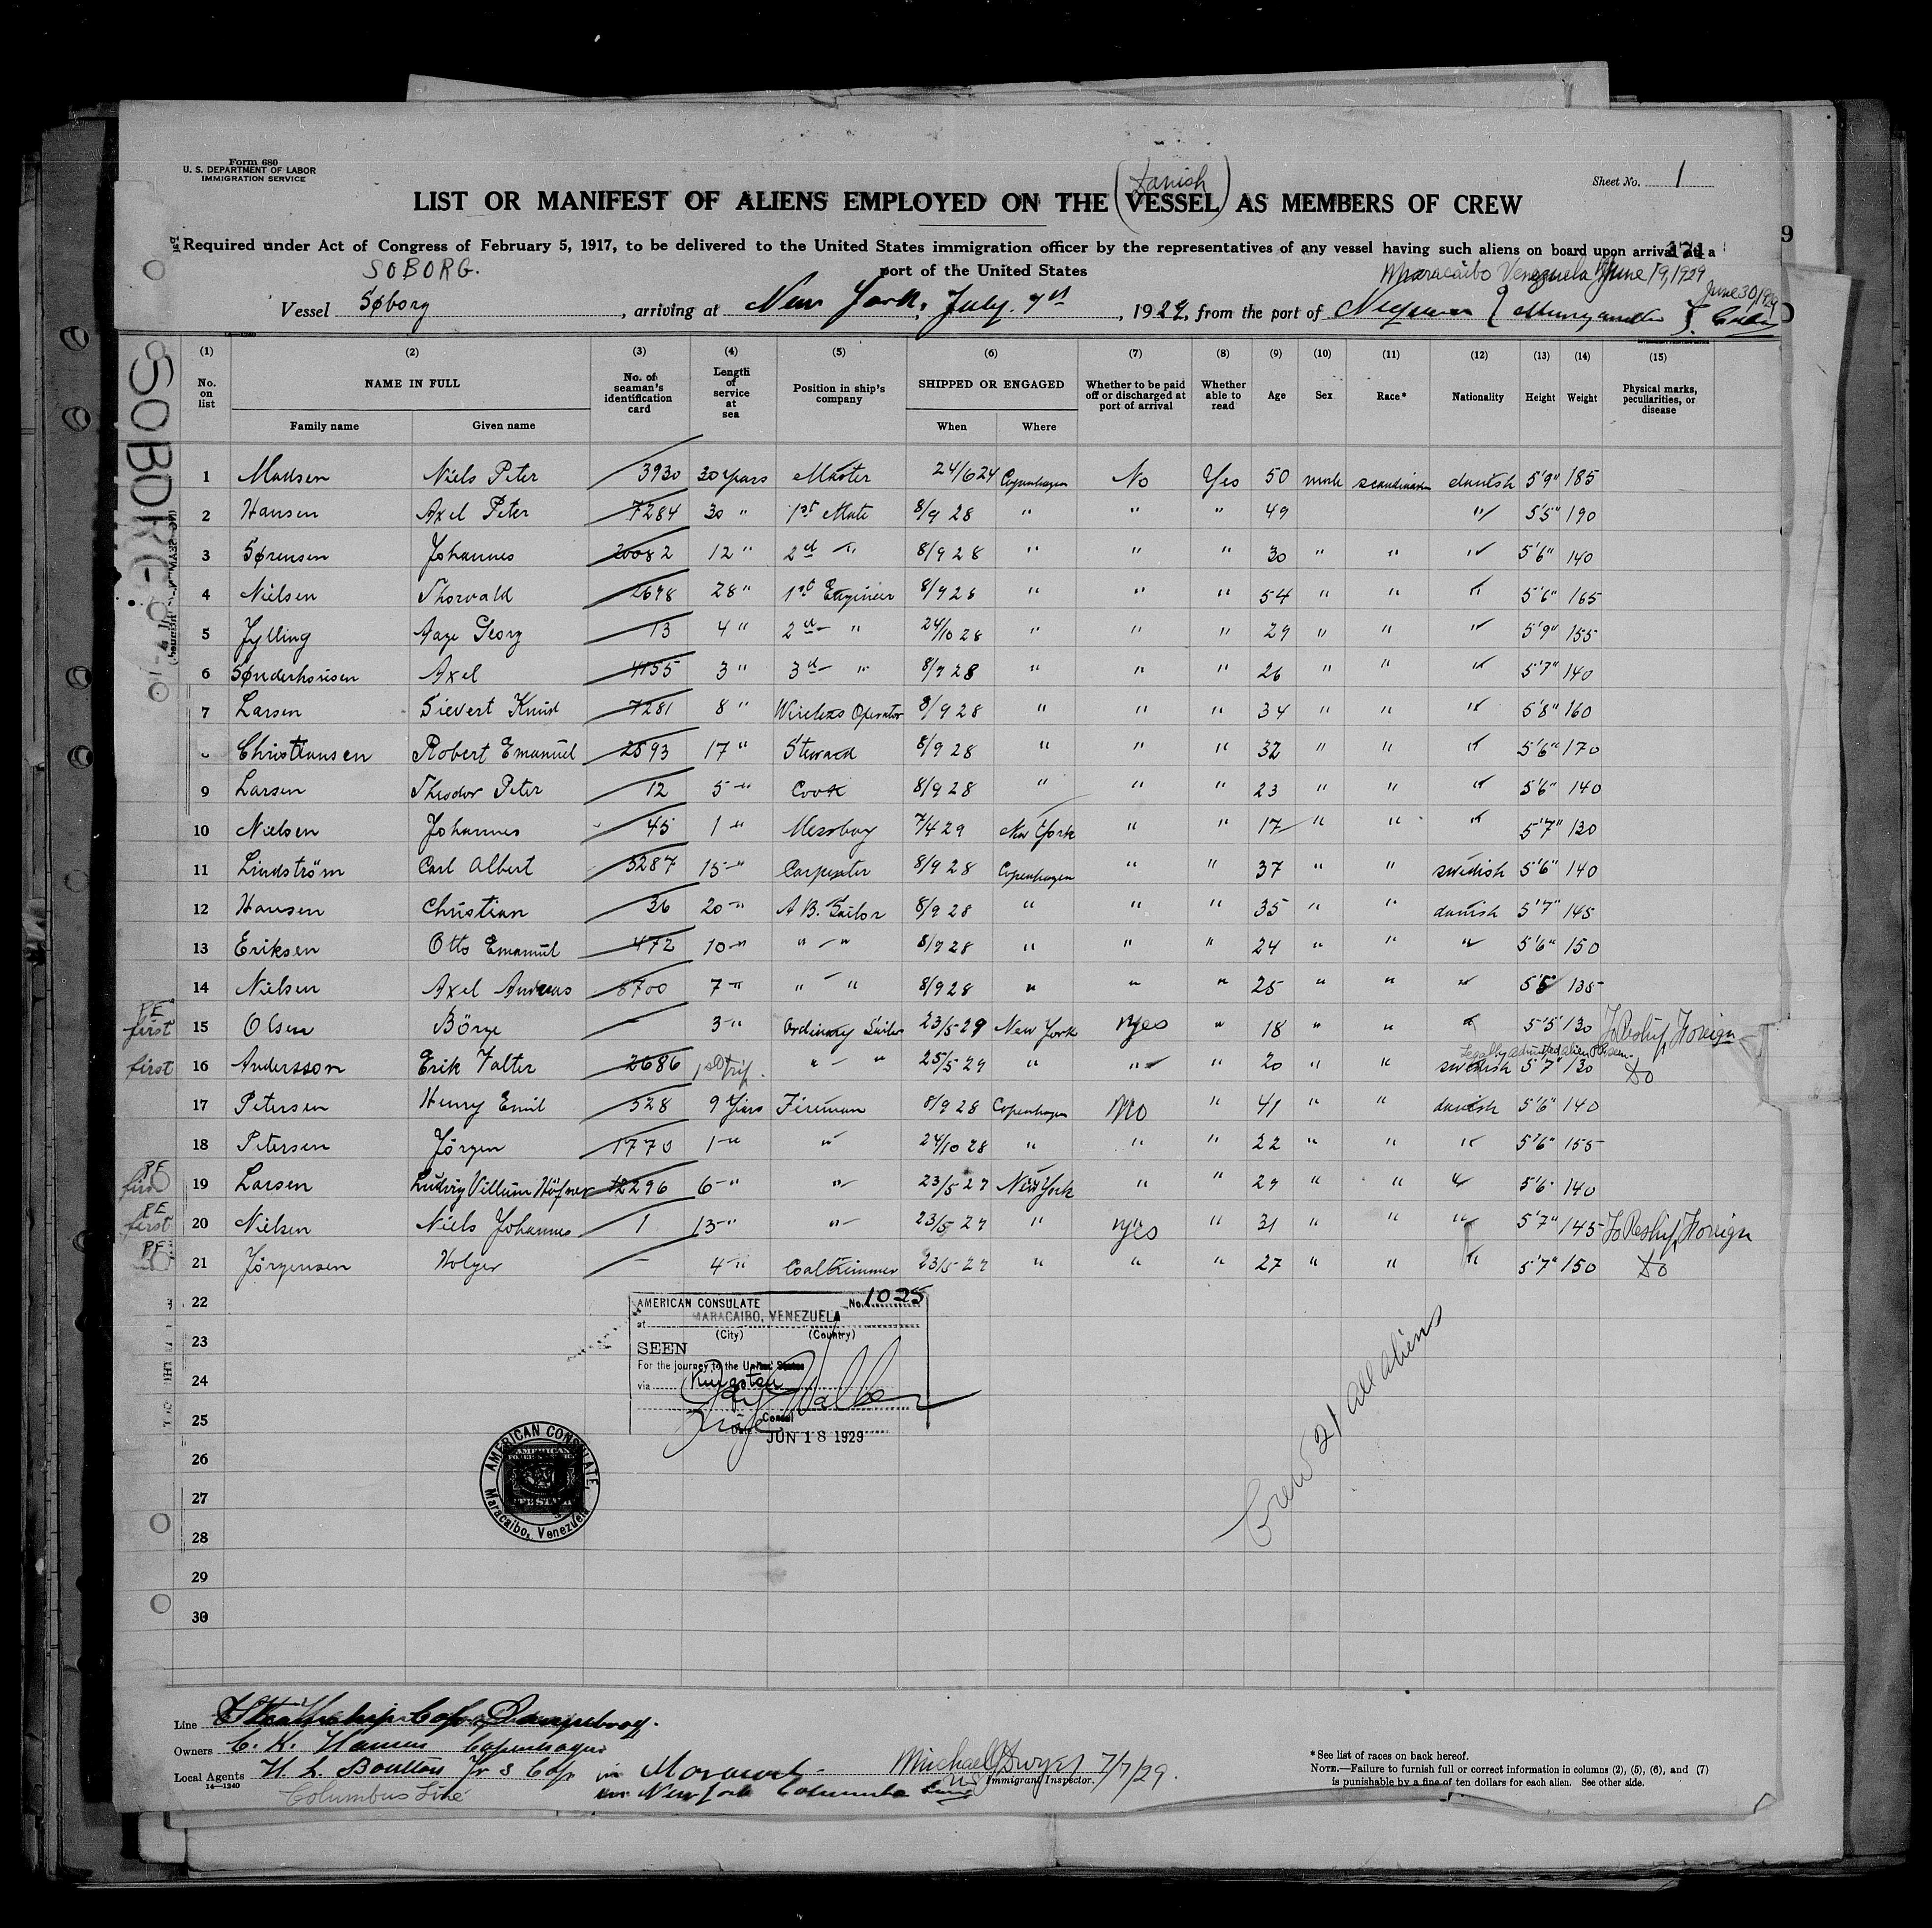 Form 680
U. S. DEPARTMENT OF LABOR
IMMIGRATION SERVICE
Sheet No. 1
(Danish)
LIST OR MANIFEST OF ALIENS EMPLOYED ON THE VESSEL AS MEMBERS OF CREW
Required under Act of Congress of February 5, 1917, to be delivered to the United States immigration officer by the representatives of any vessel having such aliens on board upon arrival at a
port of the United States
171
SOBORG.
Maracaibo Venezuela June 19, 1929
June 30, 1929
Vessel Søborg, arriving at New York, July. 7th, 1929, from the port of
SOBORG.
(1) (2) (3) (4) (5) (6) (7) (8) (9) (10) (11) (12) (13) (14) (15)
No. on list
NAME IN FULL
Family name
Given name
No. of seaman's identification card
Length of service at sea
Position in ship's company
SHIPPED OR ENGAGED
When
Where
Whether to be paid off or discharged at port of arrival
Whether able to read
Age
Sex
Race*
Nationality
Height
Weight
Physical marks, peculiarities, or disease
1 Madsen Niels Peter 3930 30 years Master 24/6 24 Copenhagen No Yes 50 male scandinavian danish 5'9" 185
2 Hansen Axel Peter 7284 30 " 1st Mate 8/9 28 " " " 49 " 5'5" 190
3 Sørensen Johannes 20082 12 " 2d " 8/9 28 " " " 30 " " " 5'6" 140
4 Nielsen Thorvald 2698 28 " 1st Engineer 8/9 28 " " " 54 " " " 5'6" 165
5 Jylling Aage Georg 13 4 " 2d " 24/10 28 " " " 29 " " " 5'9" 155
6 Sønderhousen Axel 4155 3 " 3d " 8/9 28 " " " 26 " " " 5'7" 140
7 Larsen Sievert Knud 7281 8 " Wireless Operator 8/9 28 " " " 34 " " " 5'8" 160
Christiansen Robert Emanuel 2893 17 " Steward 8/9 28 " " " 32 " " " 5'6" 170
9 Larsen Theodor Peter 12 5 " Cook 8/9 28 " " " 23 " " " 5'6" 140
10 Nielsen Johannes 45 1 " Messboy 7/4 29 New York " " 17 " " " 5'7" 130
11 Lindström Carl Albert 3287 15 " Carpenter 8/9 28 Copenhagen " " 37 " " swedish 5'6" 140
12 Hansen Christian 36 20 " A B. Sailor 8/9 28 " " " 35 " " danish 5'7" 145
13 Eriksen Otto Emanuel 472 10 " " " 8/9 28 " " " 24 " " " 5'6" 150
14 Nielsen Axel Andreas 8700 7 " " " 8/9 28 " " " 25 " " " 135
PE first 15 Olsen Börge – 3 " Ordinary Sailor 23/5 29 New York yes " 18 " " " 5'5" 130 To Reship Foreign
Legally admitted alien
first 16 Andersson Erik Valter 2686 1st trip. " " 25/5 29 " " " 20 " " swedish 5'7" 130 Do
17 Petersen Henry Emil 328 9 years Fireman 8/9 28 Copenhagen No " 41 " " danish 5'6" 140
18 Petersen Jørgen 1770 1 " " 24/10 28 " " " 22 " " " 5'6" 155
PE first 19 Larsen Ludvig Villum 12296 6 " " 23/5 29 New York " " 29 " " " 5'6" 140
PE first 20 Nielsen Niels Johannes 1 13 " " 23/5 29 " yes " 31 " " " 5'7" 145 To Reship Foreign
PE 21 Jørgensen Holger – 4 " Coaltrimmer 23/5 29 " " " 27 " " " 5'7" 150 Do
22
23
24
25
26
27
28
29
30
AMERICAN CONSULATE No. 1025
at MARACAIBO, VENEZUELA
(City) (Country)
SEEN
For the journey to the United States
via Kingston
Consul
Date JUN 18 1929
AMERICAN CONSULATE,
Maracaibo, Venezuela
Crew 21 all aliens
Line
Owners C. K. Hansen Copenhagen
Local Agents H. L. Boulton Jr & Co
14—1240
Columbus Line
in New York Columbus Line
Michael Dwyer 7/7/29.
Immigrant Inspector.
* See list of races on back hereof.
NOTE.—Failure to furnish full or correct information in columns (2), (5), (6), and (7)
is punishable by a fine of ten dollars for each alien. See other side.